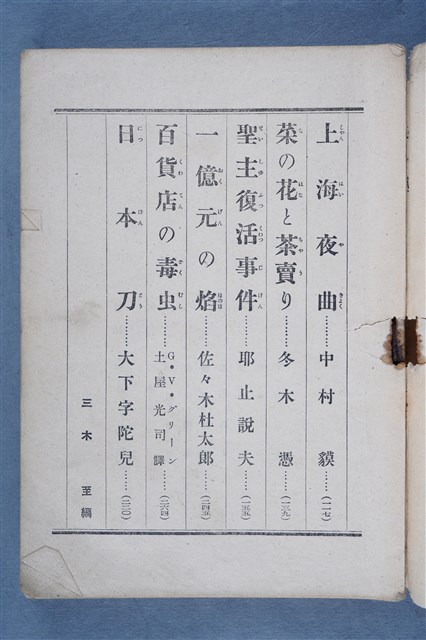 上海夜曲……中村 貘……(一一七)
菜の花と茶賣り……冬木 憑……(一三九)
聖主復活事件……耶止說夫……(一五五)
一億元の焰……佐々木杜太郎……(二四五)
百貨店の毒虫……G・V・グリーン 土屋光司譯……(二六四)
日本刀……大下宇陀兒……(二三〇)
三木 至編